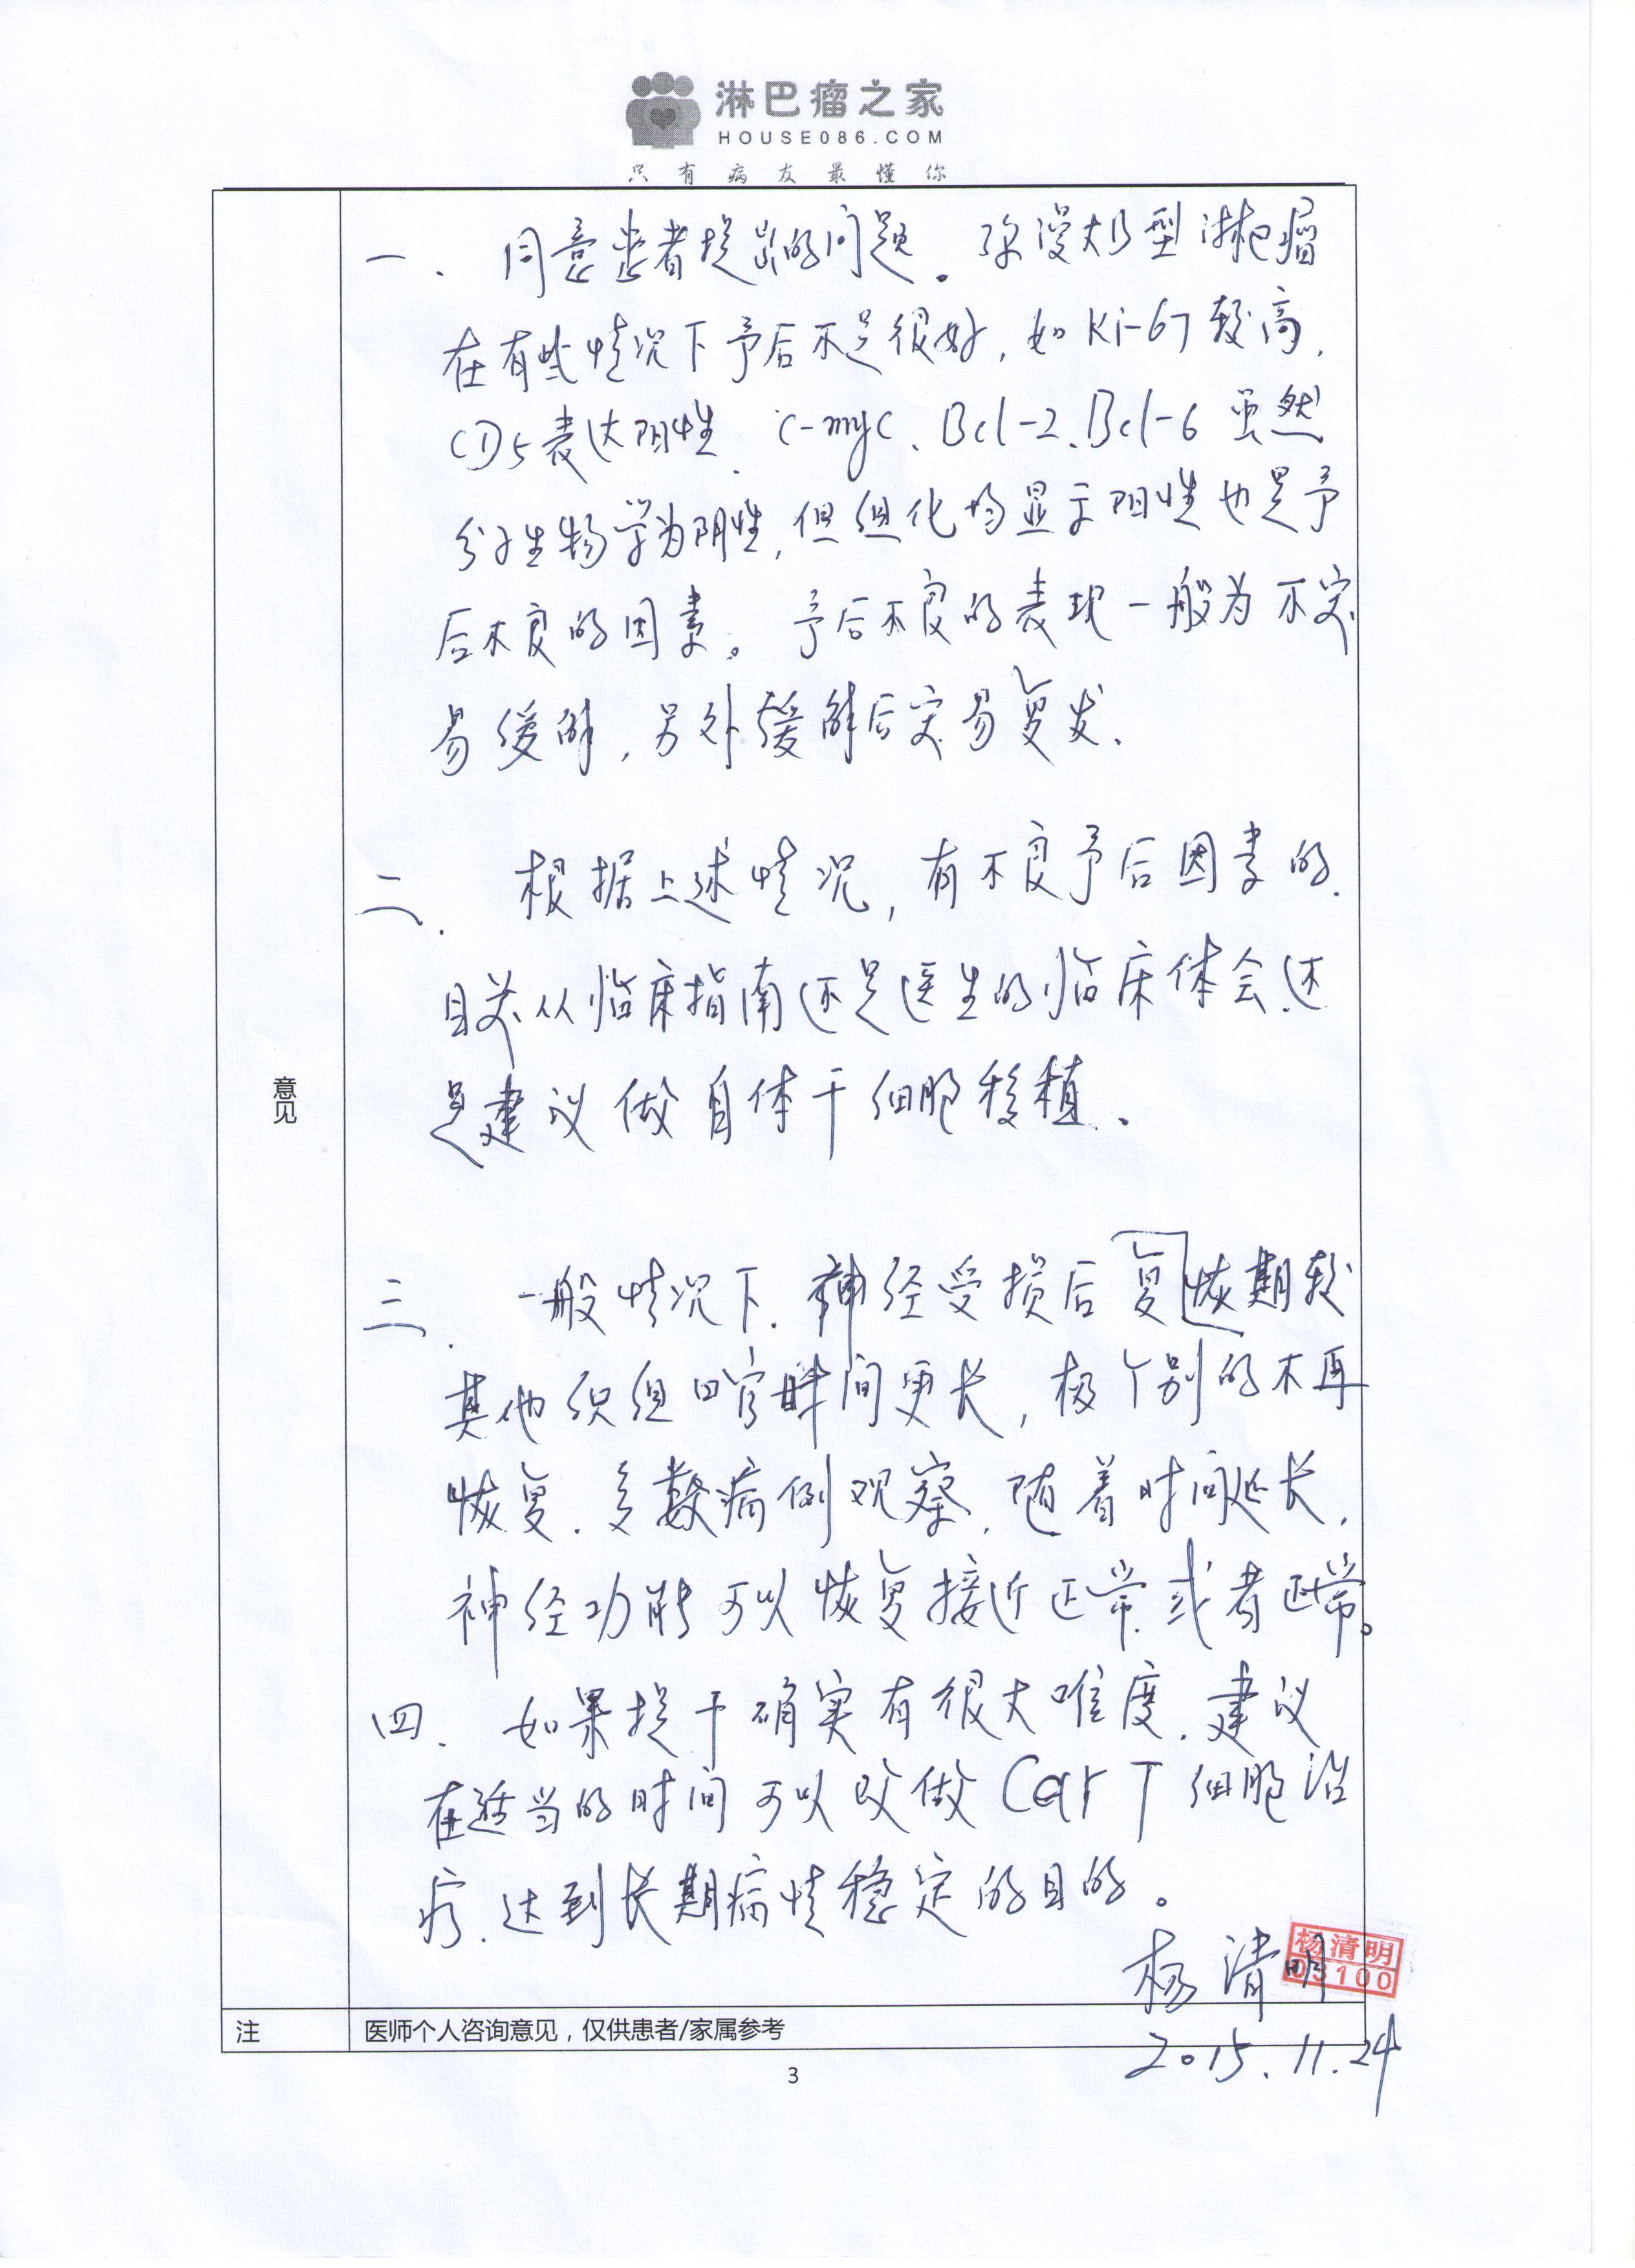 淋巴瘤之家
HOUSE086.COM
只有病友最懂你
一. 同意患者提出的问题。弥漫大B型淋巴瘤
在有些情况下予后不是很好, 如Ki-67较高,
CD5表达阳性. C-myc、Bcl-2、Bcl-6虽然
分子生物学为阴性, 但组化均显示阳性也是予
后不良的因素。予后不良的表现一般为不容
易缓解, 另外缓解后容易复发.
二. 根据上述情况, 有不良予后因素的.
目前从临床指南还是医生的临床体会还
是建议做自体干细胞移植。
三. 一般情况下. 神经受损后复恢期较
其他织组口官时间更长, 极个别的不再
恢复. 多数病例观察, 随着时间延长,
神经功能可以恢复接近正常或者正常。
四. 如果提干确实有很大难度, 建议
在适当的时间可以改做CarT细胞治
疗. 达到长期病情稳定的目的。
意见
杨清明
杨清明
03100
注
医师个人咨询意见，仅供患者/家属参考
2015.11.24
3